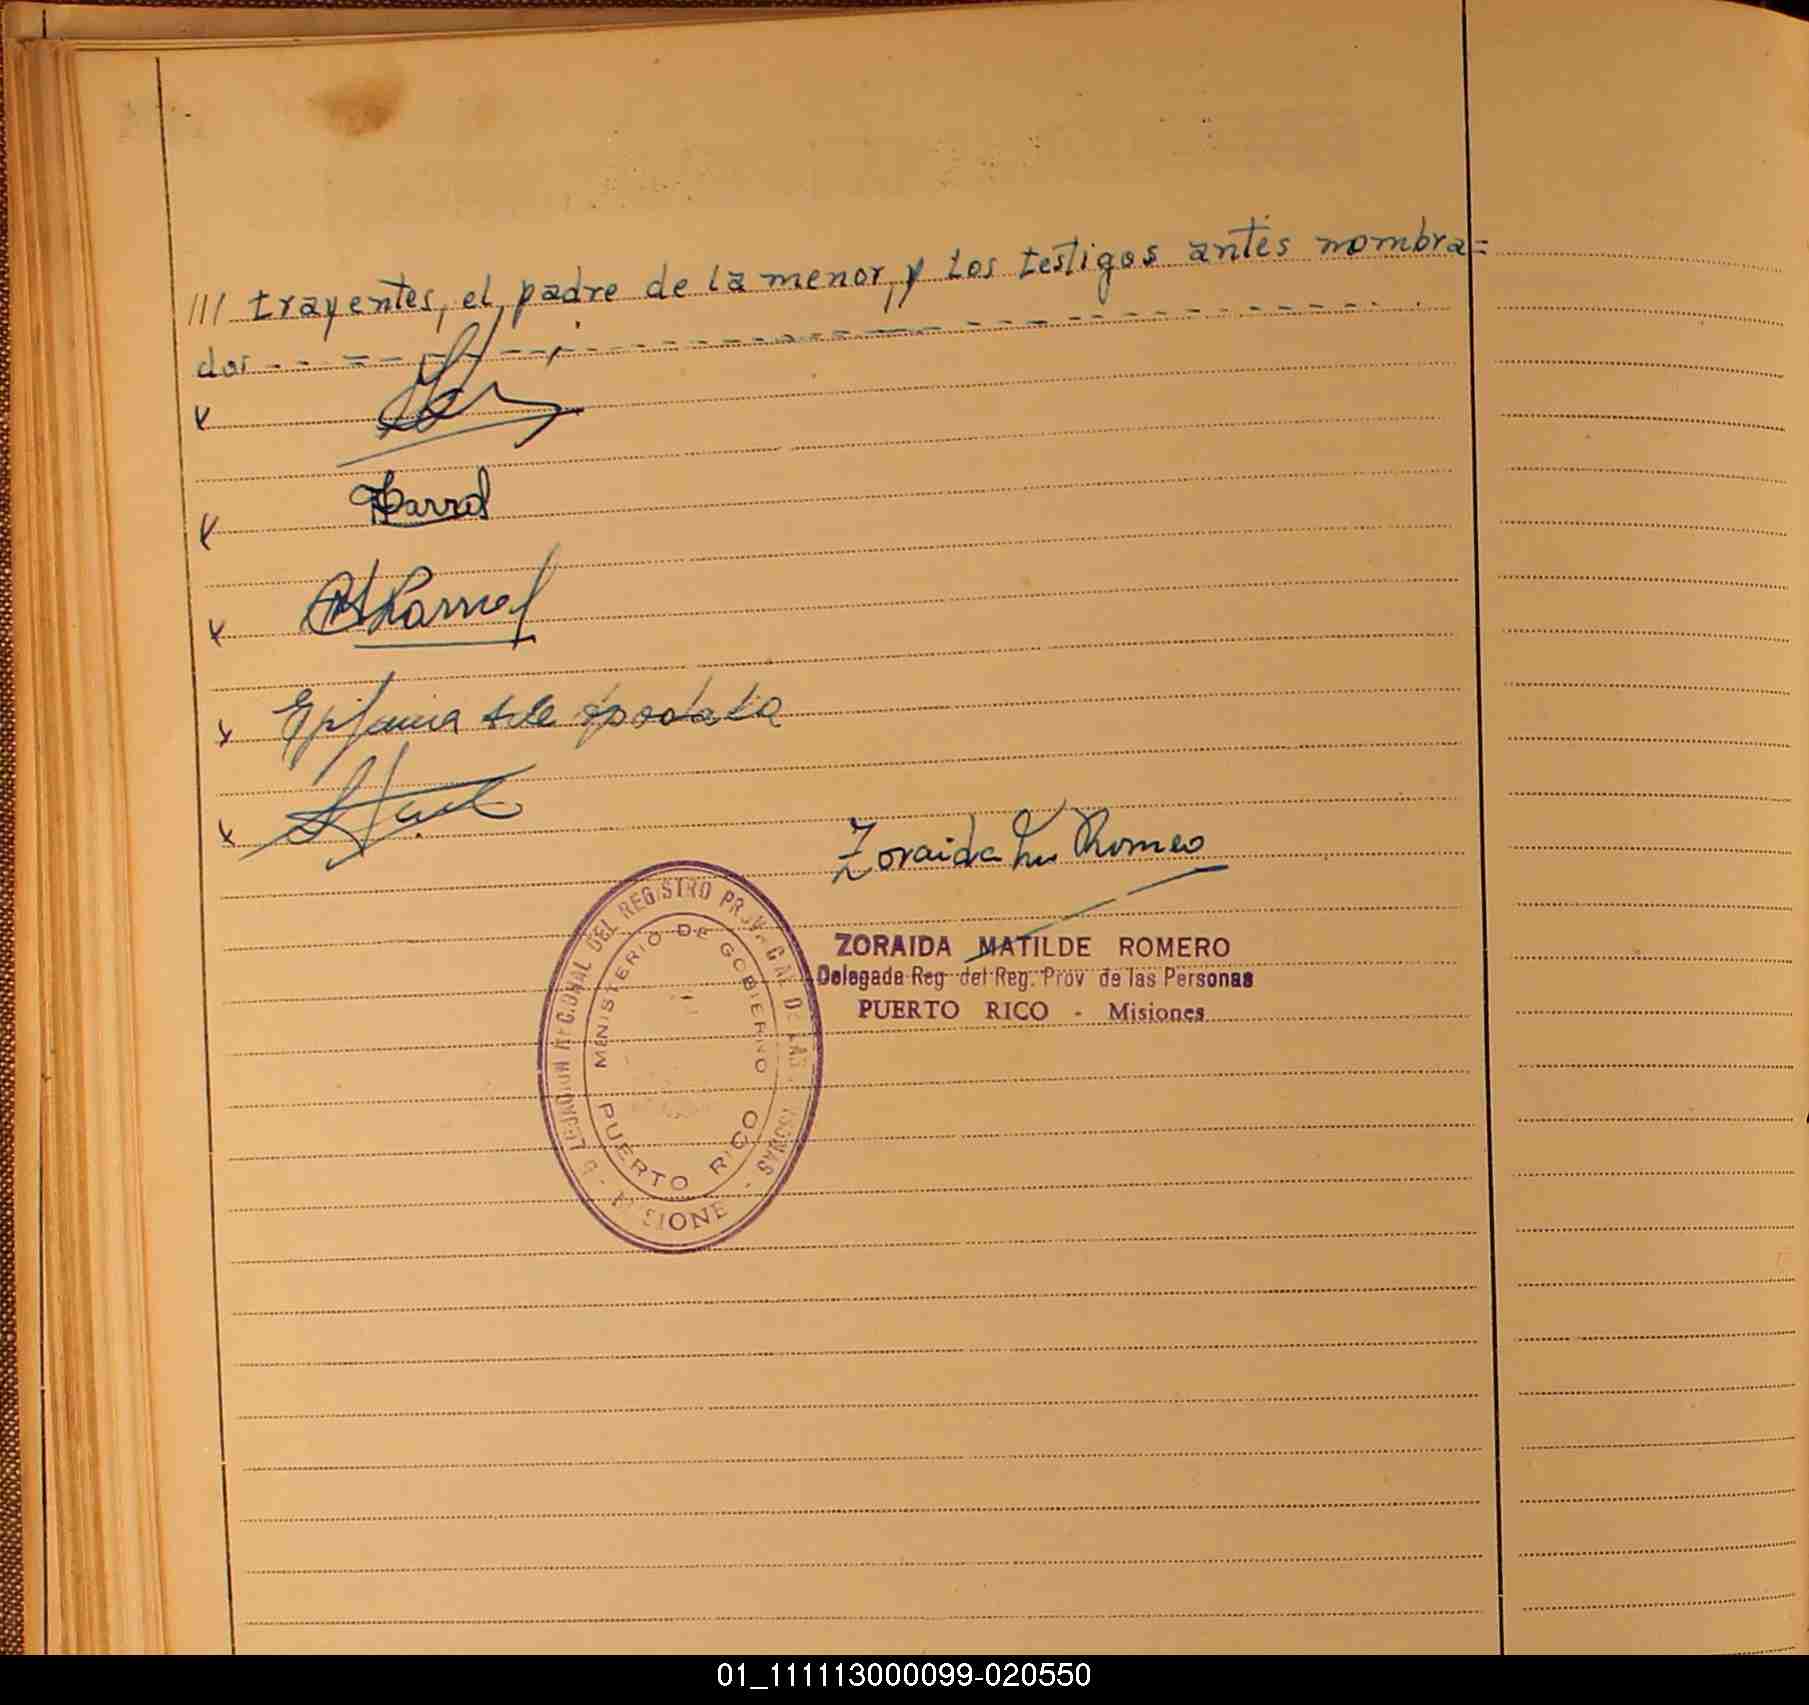 /// trayentes, el padre de la menor, y los testigos antes nombra=
dos - - = - - - - - - - - - - - - - - - - - - - - - -
x
x
x
x Epifania
x
Zoraida M. Romero
ZORAIDA MATILDE ROMERO
Delegada Reg del Reg. Prov de las Personas
PUERTO RICO - Misiones
DELEGACION REGIONAL DEL REGISTRO PROVINCIAL DE LAS PERSONAS
MINISTERIO DE GOBIERNO
PUERTO RICO
- MISIONES -
01_111113000099-020550